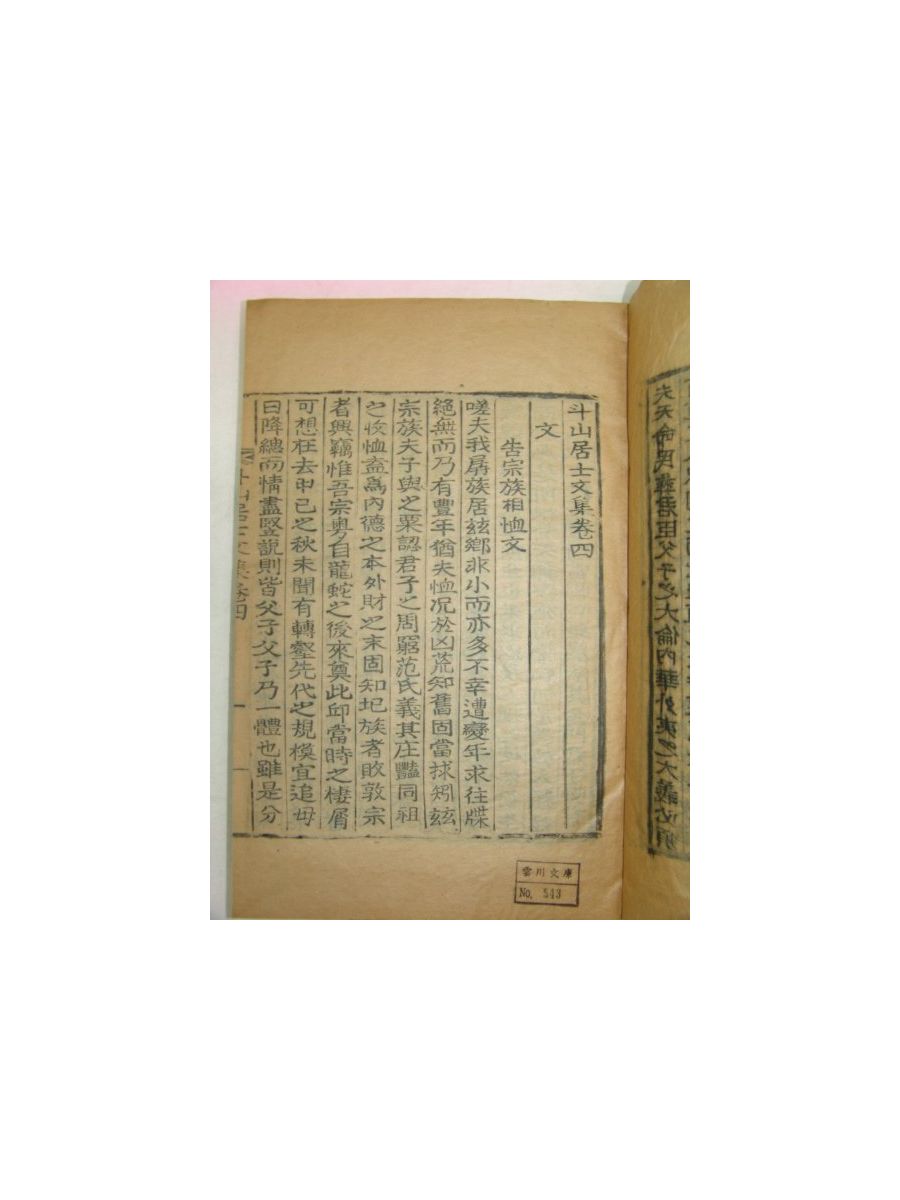 斗山居士文集卷四
文
告宗族相恤文
嗟夫我孱族居玆鄕非小而亦多不幸遭變年求往牒
絶無而乃有豐年猶夫恤况於凶荒知舊固當捄矧玆
宗族夫子與之粟認君子之周窮范氏義其庄豔同祖
之收恤盍爲內德之本外財之末固知圮族者敗敦宗
者興竊惟吾宗粤自龍蛇之後來奠此邱當時之棲屑
可想在去甲已之秋未聞有轉壑先代之規模宜追毋
曰降緦而情盡竪說則皆父子父子乃一體也雖是分
斗山居士文集卷四
一
夫天命民彝君臣父子之大倫內華外夷之大義
雲川文庫
No. 543